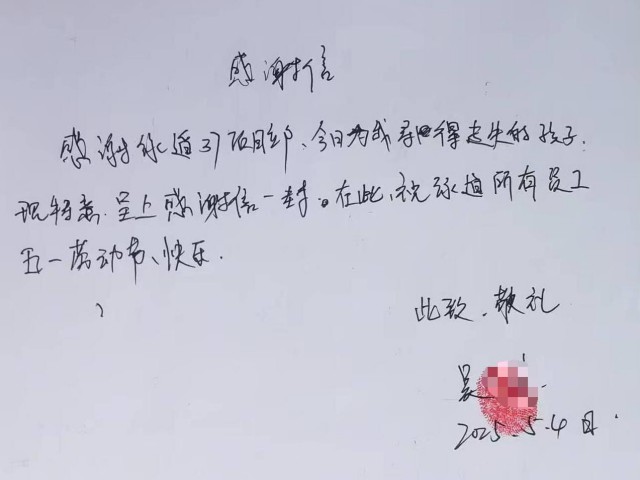 感谢信
感谢永道37项目部、今日为我寻回得走失的孩子.
现特意.呈上感谢信一封。在此,祝永道所有员工
五一劳动节、快乐.
此致.敬礼
吴
2025.5.4日.